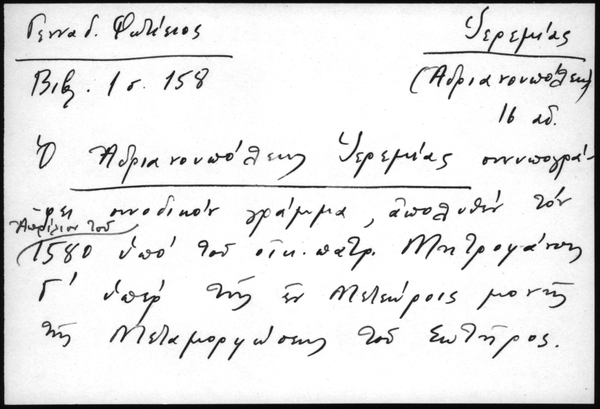 Γενναδ. Φωτίειος Ἱερεμίας
Βιβ. 1 σ. 158 (Ἀδριανουπόλεως)
16 αἰ.
Ὁ Ἀδριανουπόλεως Ἱερεμίας συνυπογρά-
φει συνοδικόν γράμμα, ἀπολυθέν τόν
Ἀπρίλιον τοῦ
1580 ὑπό τοῦ οἰκ. πατρ. Μητροφάνους
Γ' ὑπέρ τῆς ἐν Μετεώροις μονῆς
τῆς Μεταμορφώσεως τοῦ Σωτῆρος.